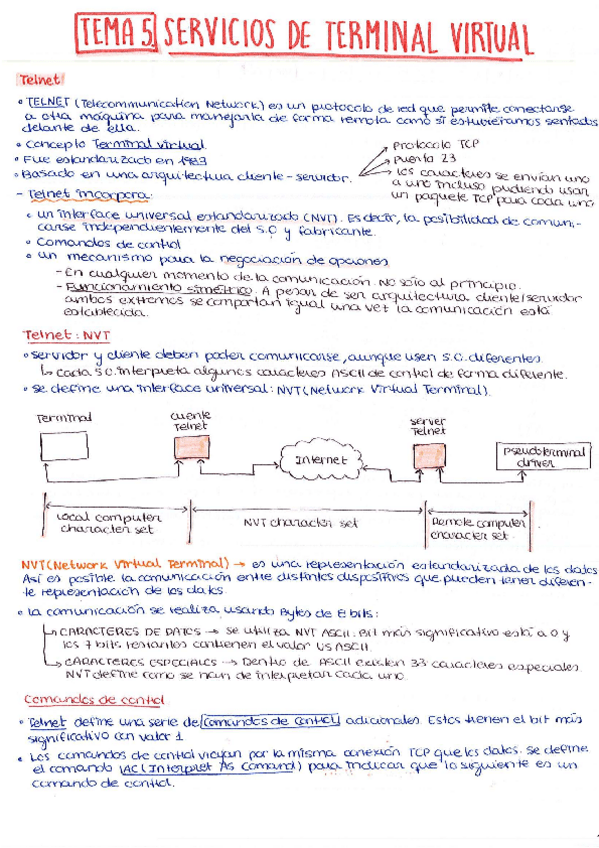 TEMA 5. SERVICIOS DE TERMINAL VIRTUAL
Telnet
• TELNET (Telecommunication Network) es un protocolo de red que permite conectarse
a otra máquina para manejarla de forma remota como si estuvieramos sentados
delante de ella.
• concepto Terminal virtual
• Fue estandarizado en 1983
• Basado en una arquitectura cliente-servidor.
Protocolo TCP
Puerto 23
Los caracteres se envían uno
a uno incluso pudiendo usar
un paquete TCP para cada uno
- Telnet incorpora:
• un interface universal estandarizado (NVT). Es decir, la posibilidad de comuni-
carse independientemente del S.O y fabricante.
• Comandos de control
• un mecanismo para la negociación de opciones
- En cualquier momento de la comunicación. No solo al principio.
- Funcionamiento simétrico. A pesar de ser arquitectura cliente/servidor
ambos extremos se comportan igual una vez la comunicación está
establecida.
Telnet: NVT
• servidor y cliente deben poder comunicarse, aunque usen S.O. diferentes.
↳ cada S.O. interpreta algunos caracteres ASCII de control de forma diferente.
• se define una interface universal: NVT (Network Virtual Terminal).
Terminal
cliente
Telnet
Internet
server
Telnet
pseudoterminal
driver
Local computer
character set
NVT character set
Remote computer
character set
NVT (Network Virtual Terminal) → es una representación estandarizada de los datos
Así es posible la comunicación entre distintos dispositivos que pueden tener diferen-
te representación de los datos.
• la comunicación se realiza usando Bytes de 8 bits:
↳ CARACTERES DE DATOS → se utiliza NVT ASCII. Bit más significativo está a 0 y
los 7 bits restantes contienen el valor US ASCII.
↳ CARACTERES ESPECIALES → Dentro de ASCII existen 33 caracteres especiales.
NVT define como se han de interpretar cada uno.
Comandos de control
• Telnet define una serie de comandos de control adicionales. Estos tienen el bit más
significativo con valor 1
• Los comandos de control viajan por la misma conexión TCP que los datos. se define
el comando IAC (Interpret As Comand) para indicar que lo siguiente es un
comando de control.